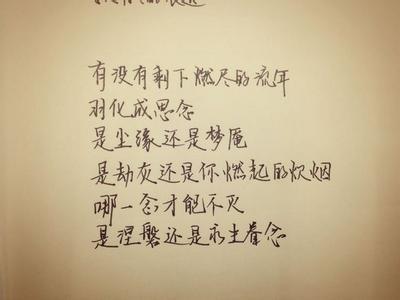 有没有剩下燃尽的流年
羽化成思念
是尘缘还是梦魇
是劫灰还是你燃起的炊烟
哪一念才能不灭
是涅磐还是永生眷念